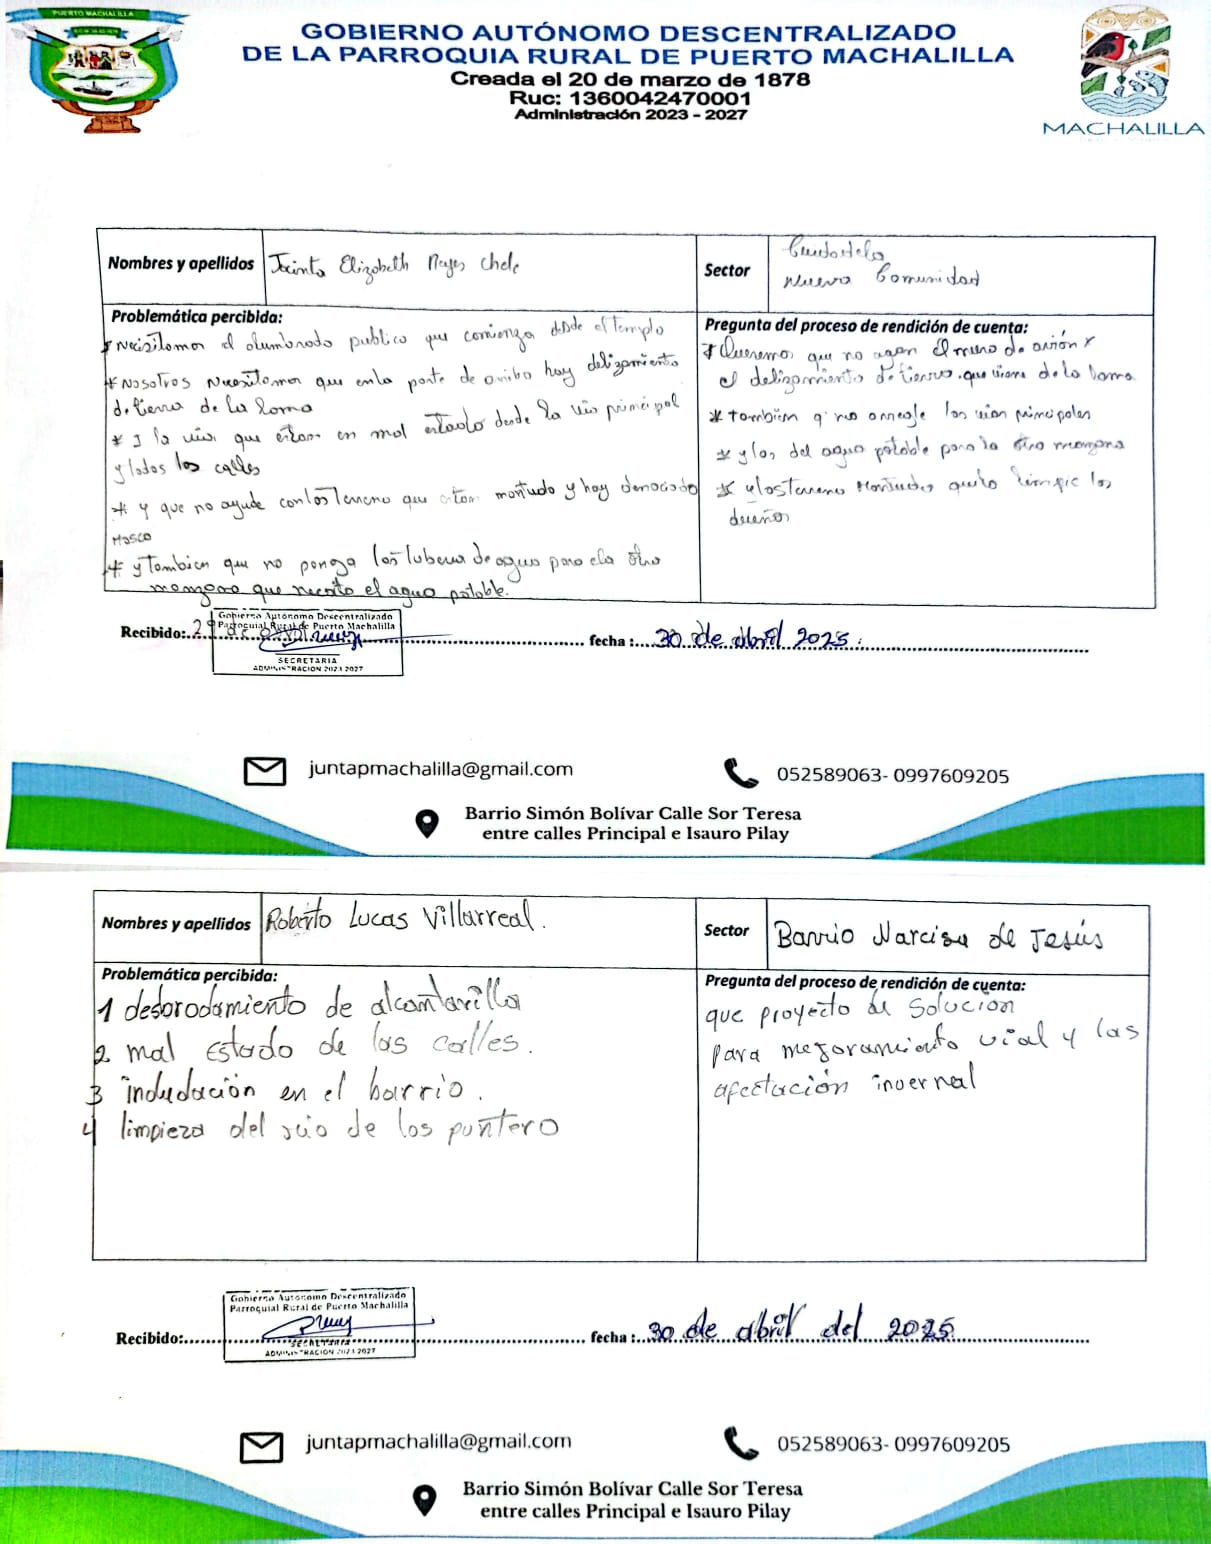 PUERTO MACHALILLA
GOBIERNO AUTÓNOMO DESCENTRALIZADO
DE LA PARROQUIA RURAL DE PUERTO MACHALILLA
Creada el 20 de marzo de 1878
Ruc: 1360042470001
Administración 2023 - 2027
MACHALILLA
Nombres y apellidos Jacinta Elizabeth Reyes Chele
Sector
Nueva Comunidad
Problemática percibida:
* Necisitamos el alumbrado publico que comienza desde el templo
* Nosotros Nuesitamos que en la parte de arriba hay delizamiento
de tierra de la loma
* y la vias que estan en mal estado desde la via principal
y todas las calles
* y que no ayude con los terreno que estan montudo y hay demaciado
Masco
* y tambien que no ponga las tuberia de agua para ela otra
manzana que necito el agua potable.
Pregunta del proceso de rendición de cuenta:
* Queremos que no agan el muro de
el delizamiento de tierra que viene de la loma
* tambien q' no arregle las vias principales
* y los del agua potable para la otra manzana
* y los terreno Montudos que lo limpie los
dueños
Recibido: 29 de abril
Gobierno Autónomo Descentralizado
Parroquial Rural de Puerto Machalilla
SECRETARIA
ADMINISTRACION 2023 2027
fecha : 30 de abril 2025
juntapmachalilla@gmail.com
052589063- 0997609205
Barrio Simón Bolívar Calle Sor Teresa
entre calles Principal e Isauro Pilay
Nombres y apellidos Roberto Lucas Villarreal.
Sector Barrio Narcisa de Jesús
Problemática percibida:
1 desbrodamiento de alcantarilla
2 mal Estado de las calles.
3 indudación en el barrio.
4 limpieza del rio de los puntero
Pregunta del proceso de rendición de cuenta:
que proyecto de solución
para mejoramiento vial y las
afectación invernal
Gobierno Autónomo Descentralizado
Parroquial Rural de Puerto Machalilla
Recibido:
SECRETARIA
ADMINISTRACION 2023 2027
fecha : 30 de abril del 2025
juntapmachalilla@gmail.com
052589063- 0997609205
Barrio Simón Bolívar Calle Sor Teresa
entre calles Principal e Isauro Pilay